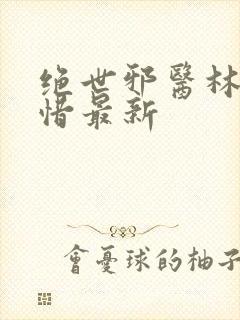 绝世邪醫林
惜最新
會憂球的柚子